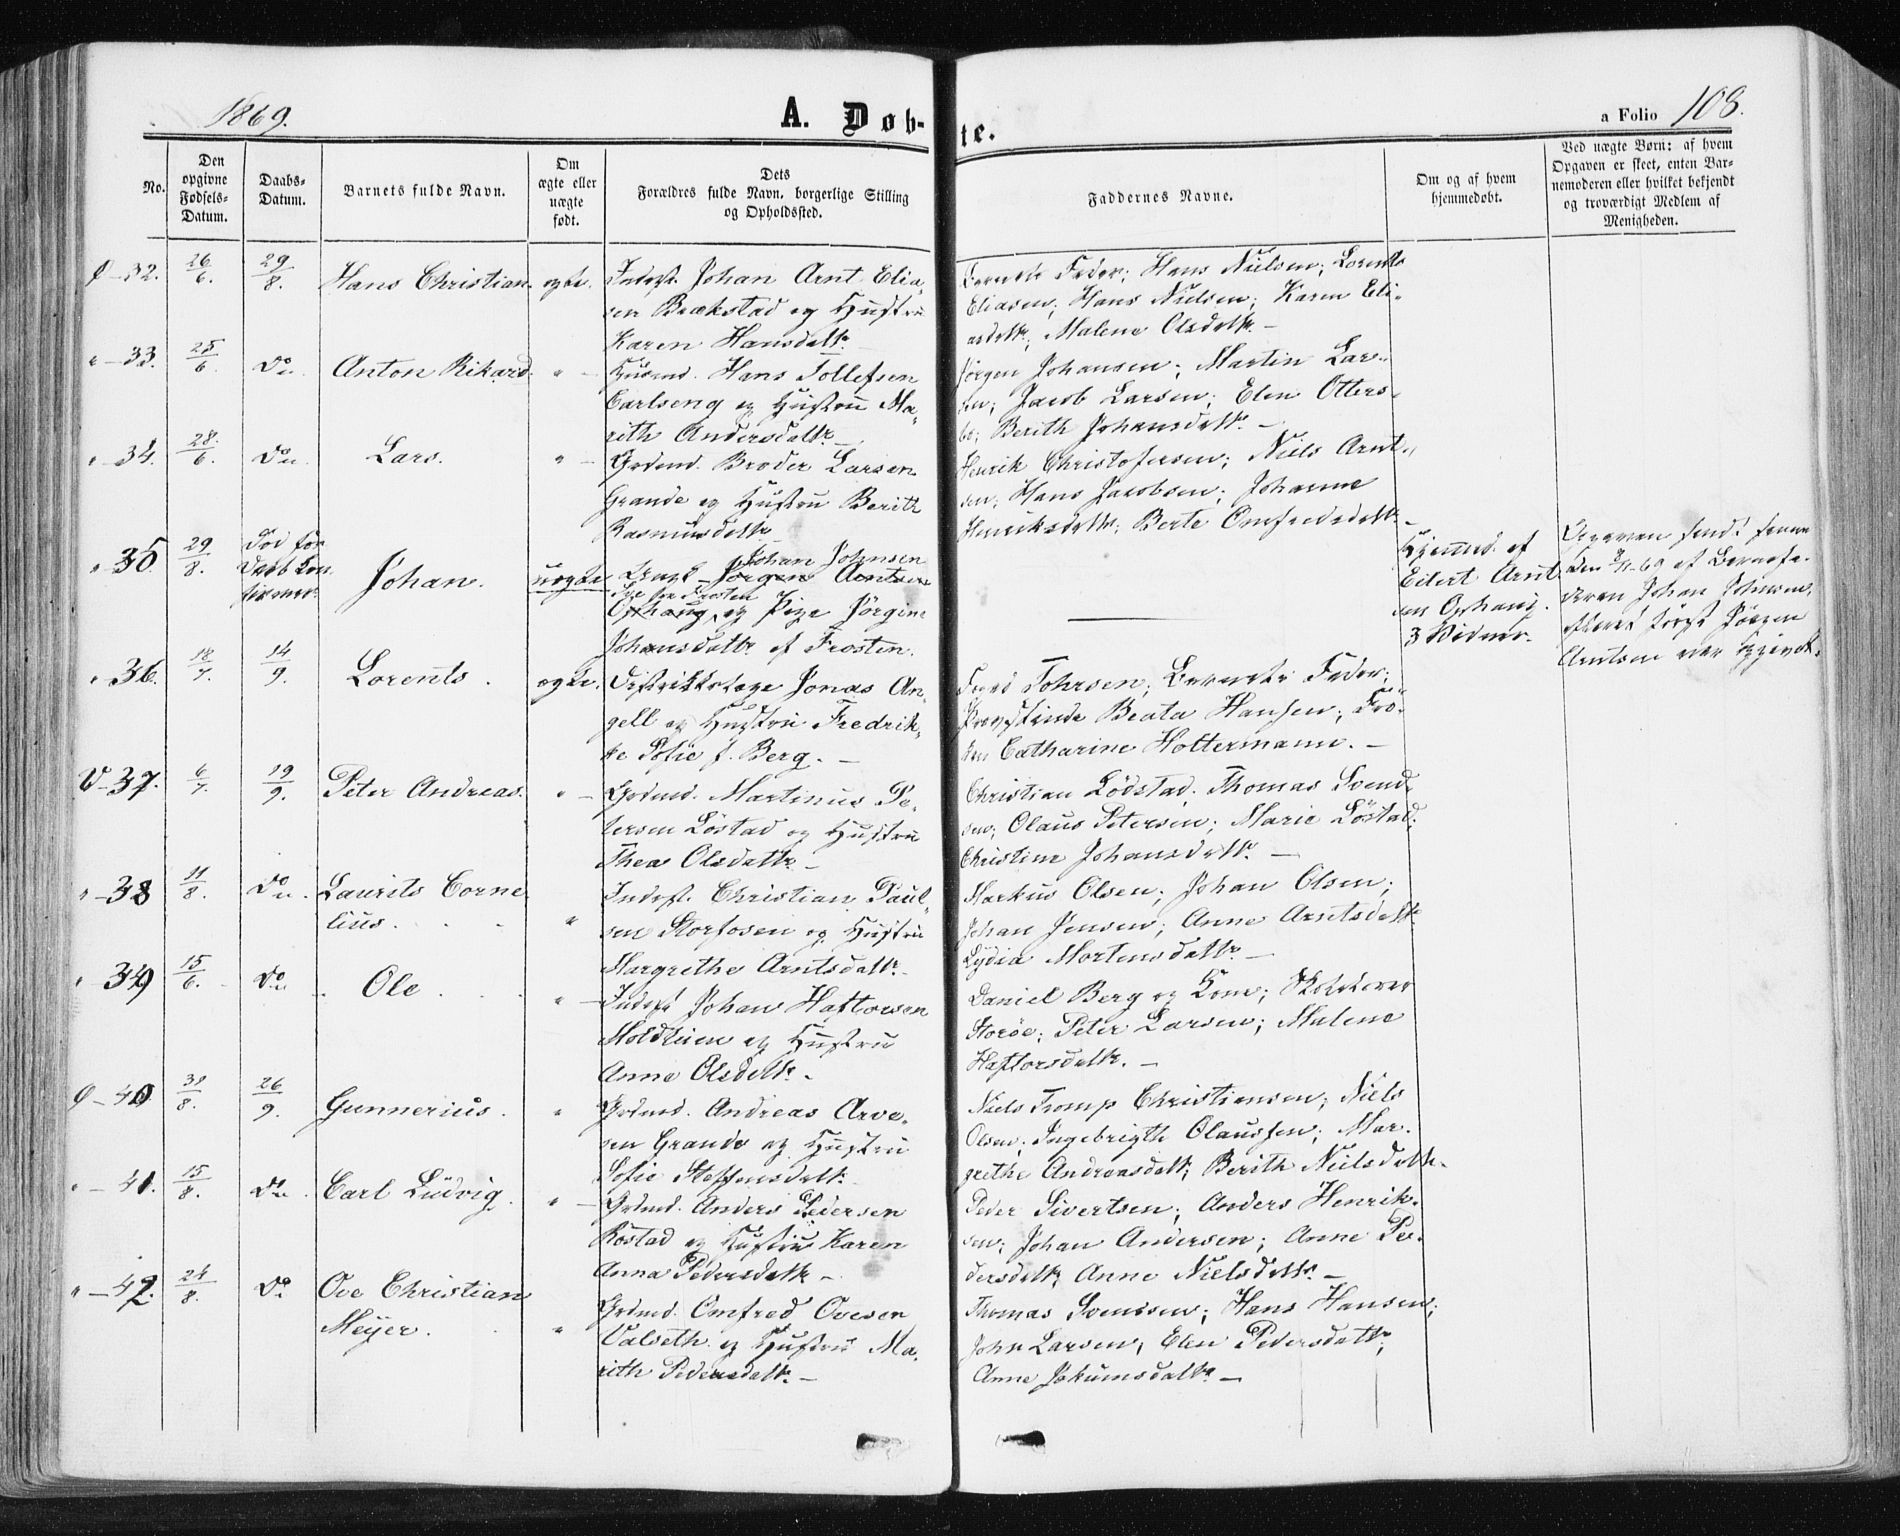 1869.
A. Døb-
te.
a Folio 108.
No.
Den
opgivne
Fødsels-
Datum.
Daabs-
Datum.
Barnets fulde Navn.
Om
ægte eller
uægte
født.
Dets
Forældres fulde Navn, borgerlige Stilling
og Opholdssted.
Faddernes Navne.
Om og af hvem
hjemmedøbt.
Ved uægte Børn: af hvem
Opgaven er skeet, enten Bar-
nemoderen eller hvilket bekjendt
og troværdigt Medlem af
Menigheden.
32. 26/6. 29/8. Hans Christian. ægte. Inderst. Johan Arnt Elia-
sen Brækstad og Hustru
Karen Hansdatt.
Barnets Fader; Hans Nielsen; Lorents
Eliasen; Hans Nielsen; Karen Eli-
asdatt; Malene Olsdatt. –
33. 25/6 Do. Anton Rikard. " Husmd. Hans Tollefsen
Carlseng og Hustru Ma-
rith Andersdatt. –
Jørgen Johansen; Martin Lar-
sen; Jacob Larsen; Elen Otters-
bo; Berith Johansdatt. –
34. 28/6. Do. Lars. " Grdmd. Broder Larsen
Grande og Hustru Berith
Rasmusdatt.
Henrik Christofersen; Niels Arnt-
sen; Hans Jacobsen; Johanne
Henriksdatt; Berte Omfredsdatt. –
35. 29/8. Død før
Daab Con-
firmer. Johan. uægte Johan Johnsen
Ungk. Jørgen Arntsen
Ophaug og Pige Jørgine
Johansdatt. af Frosten.
Hjemmed. af
Eilert Arnt-
sen Ophaug.
3 Vidner.
Opgaven
Den 8/11-69 af Barnefa-
deren Johan Johnsen,
efterat først Jørgen
Arntsen var opgivet.
36. 18/7. 14/9. Lorents. ægte. Distriktslæge Jonas An-
gell og Hustru Fredrik-
ke Sofie f. Berg. –
Tohrsen; Barnets Fader;
Provstinde Beata Hansen; Frø-
ken Catharine Holtermann. –
V–37. 6/7. 19/9. Peter Andreas. " Grdmd. Martinus Pe-
tersen Løstad og Hustru
Thea Olsdatt. –
Christian Lødstad; Thomas Svend-
sen; Olaus Petersen; Marie Løstad;
Christine Johansdatt. –
38 11/8. Do. Laurits Corne-
lius. " Inderst. Christian Paul-
sen Storfosen og Hustru
Margrethe Arntsdatt.
Markus Olsen; Johan Olsen;
Johan Jensen; Anne Arntsdatt.
Lydia Mortensdatt. –
39 15/6. Do. Ole. " Inderst Johan Haftorsen
Moldtuen og Hustru
Anne Olsdatt. –
Daniel Berg og Kone; Skolelærer
Storøe; Peter Larsen; Malene
Haftorsdatt. –
40. 31/8. 26/9. Gunnerius. " Grdmd. Andreas Arve-
sen Grande og Hustru
Sofie Steffensdatt.
Niels Tromp Christiansen; Niels
Olsen; Ingebrigth Olaussen; Mar-
grethe Andreasdatt; Berith Nielsdatt. –
41. 15/8. Do. Carl Ludvig. " Grdmd. Anders Pedersen
Røstad og Hustru Karen
Anna Pedersdatt. –
Peder Sivertsen; Anders Henrik-
sen; Johan Andersen; Anne Pe-
dersdatt; Anne Nielsdatt. –
42. 24/8. Do. Ove Christian
Meyer. " Grdmd. Omfred Ovesen
Valseth og Hustru Ma-
rith Pedersdatt. –
Thomas Svendsen; Hans Hansen;
John Larsen; Elen Pedersdatt;
Anne Jokumsdatt. –